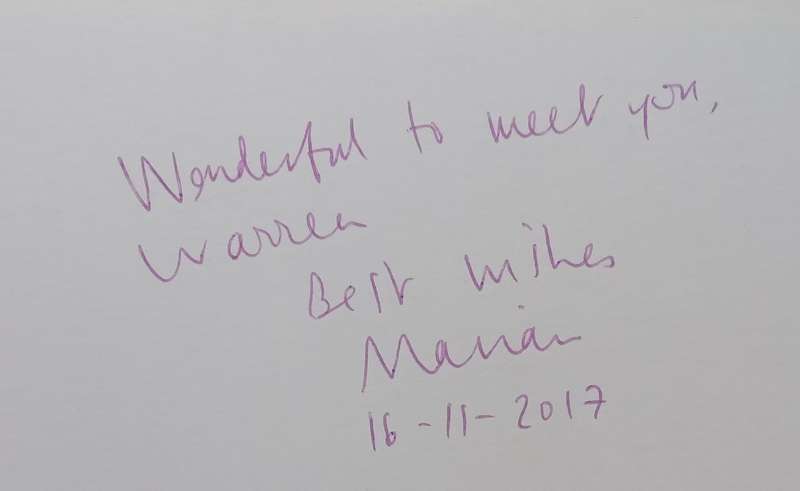 Wonderful to meet you,
Warren
Best wishes
Marian
16-11-2017